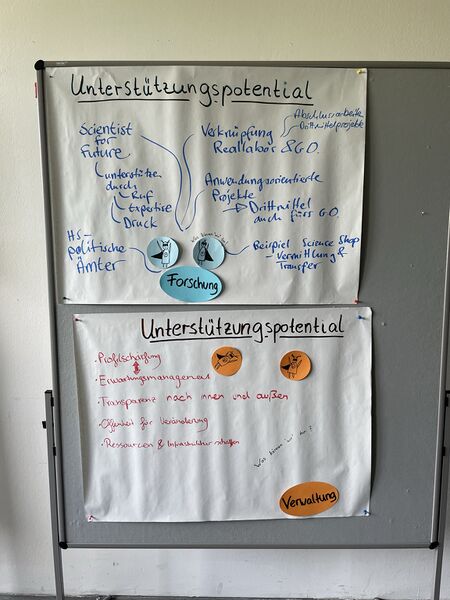 Unterstützungspotential
Scientist
for
Future
unterstützen
durch
Ruf
Expertise
Druck
HS-
politische
Ämter
Verknüpfung
Reallabor & GO.
Abschlussarbeiten
Drittmittelprojekte
Anwendungsorientierte
Projekte
→ Drittmittel
auch fürs G.O.
Beispiel Science Shop
- Vermittlung &
Transfer
Was können wir tun?
Forschung
Unterstützungspotential
· Profilschärfung
· Erwartungsmanagement
· Transparenz nach innen und außen
· Offenheit für Veränderung
· Ressourcen & Infrastruktur schaffen
Was können wir tun?
Verwaltung